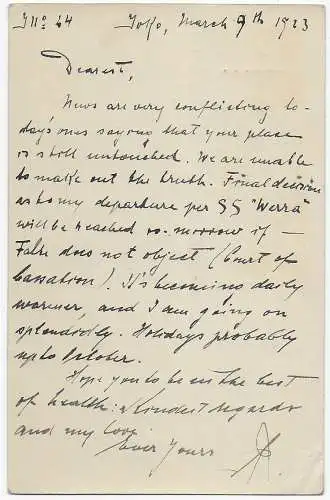 No 24 Toko, March 9th 1923
Dearest,
News are very conflicting to-
day's ones saying that your place
is still untouched. We are unable
to make out the truth. Final decision
as to my departure per SS "Werra"
will be reached to-morrow if —
Falk does not object (Court of
Cassation). It's becoming daily
warmer, and I am going on
splendidly. Holidays probably
up to October.
Hope you to be in the best
of health: Kindest regards
and my love
Ever Yours